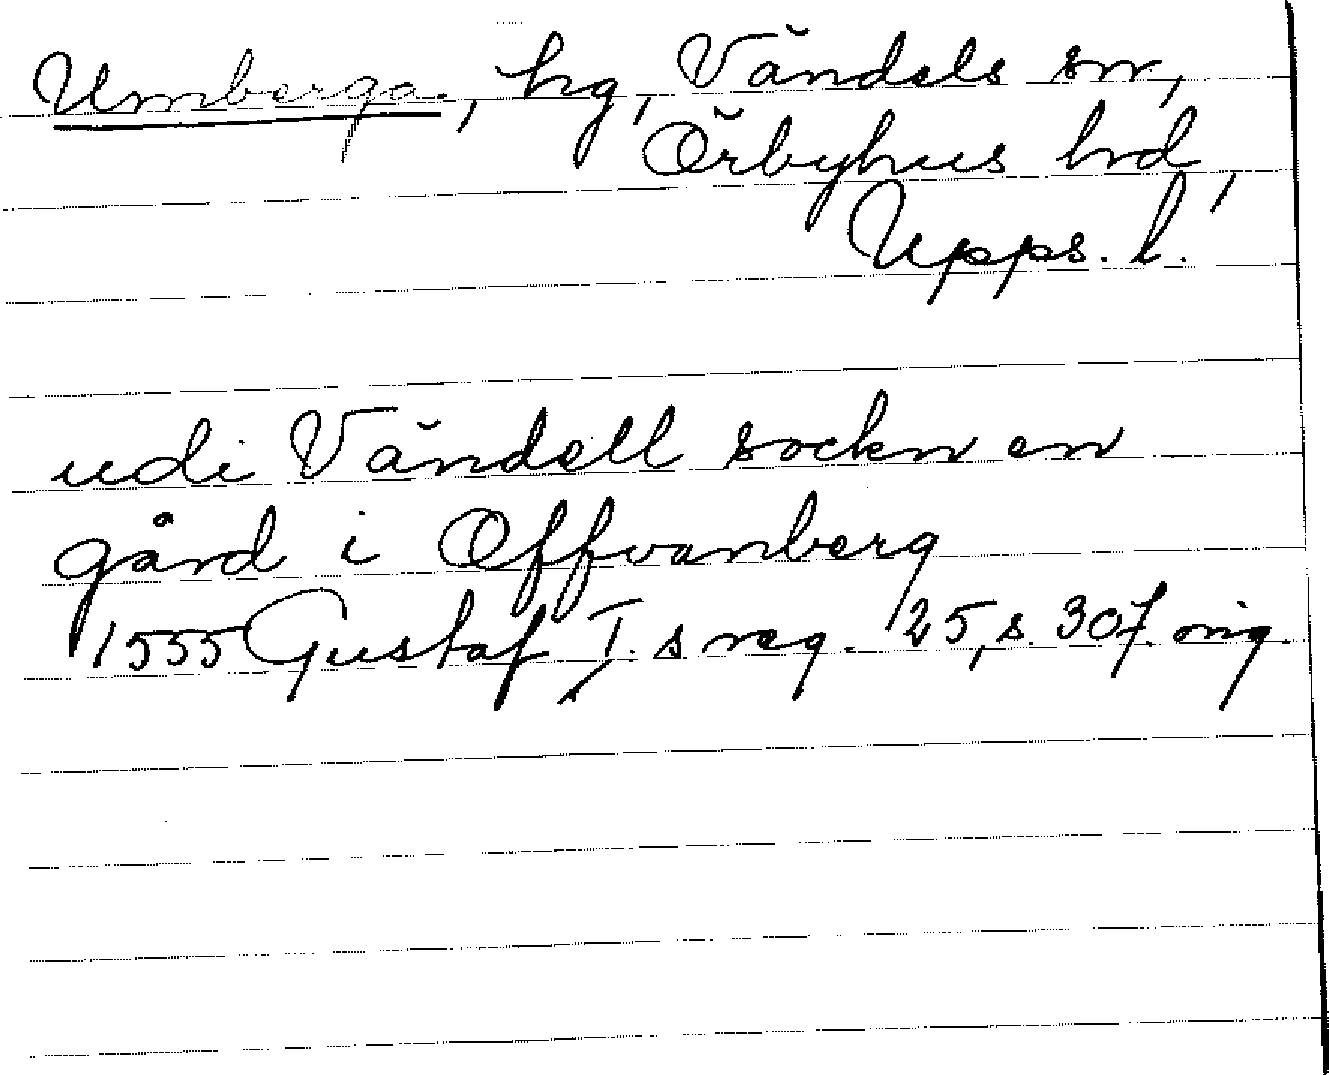 Umberga, hg, Vändels sn,
Örbyhus hrd,
Upps. l.
udi Vändell sockn en
gård i Offvanberg
1555 Gustaf I. s reg. 25, s. 307. orig.